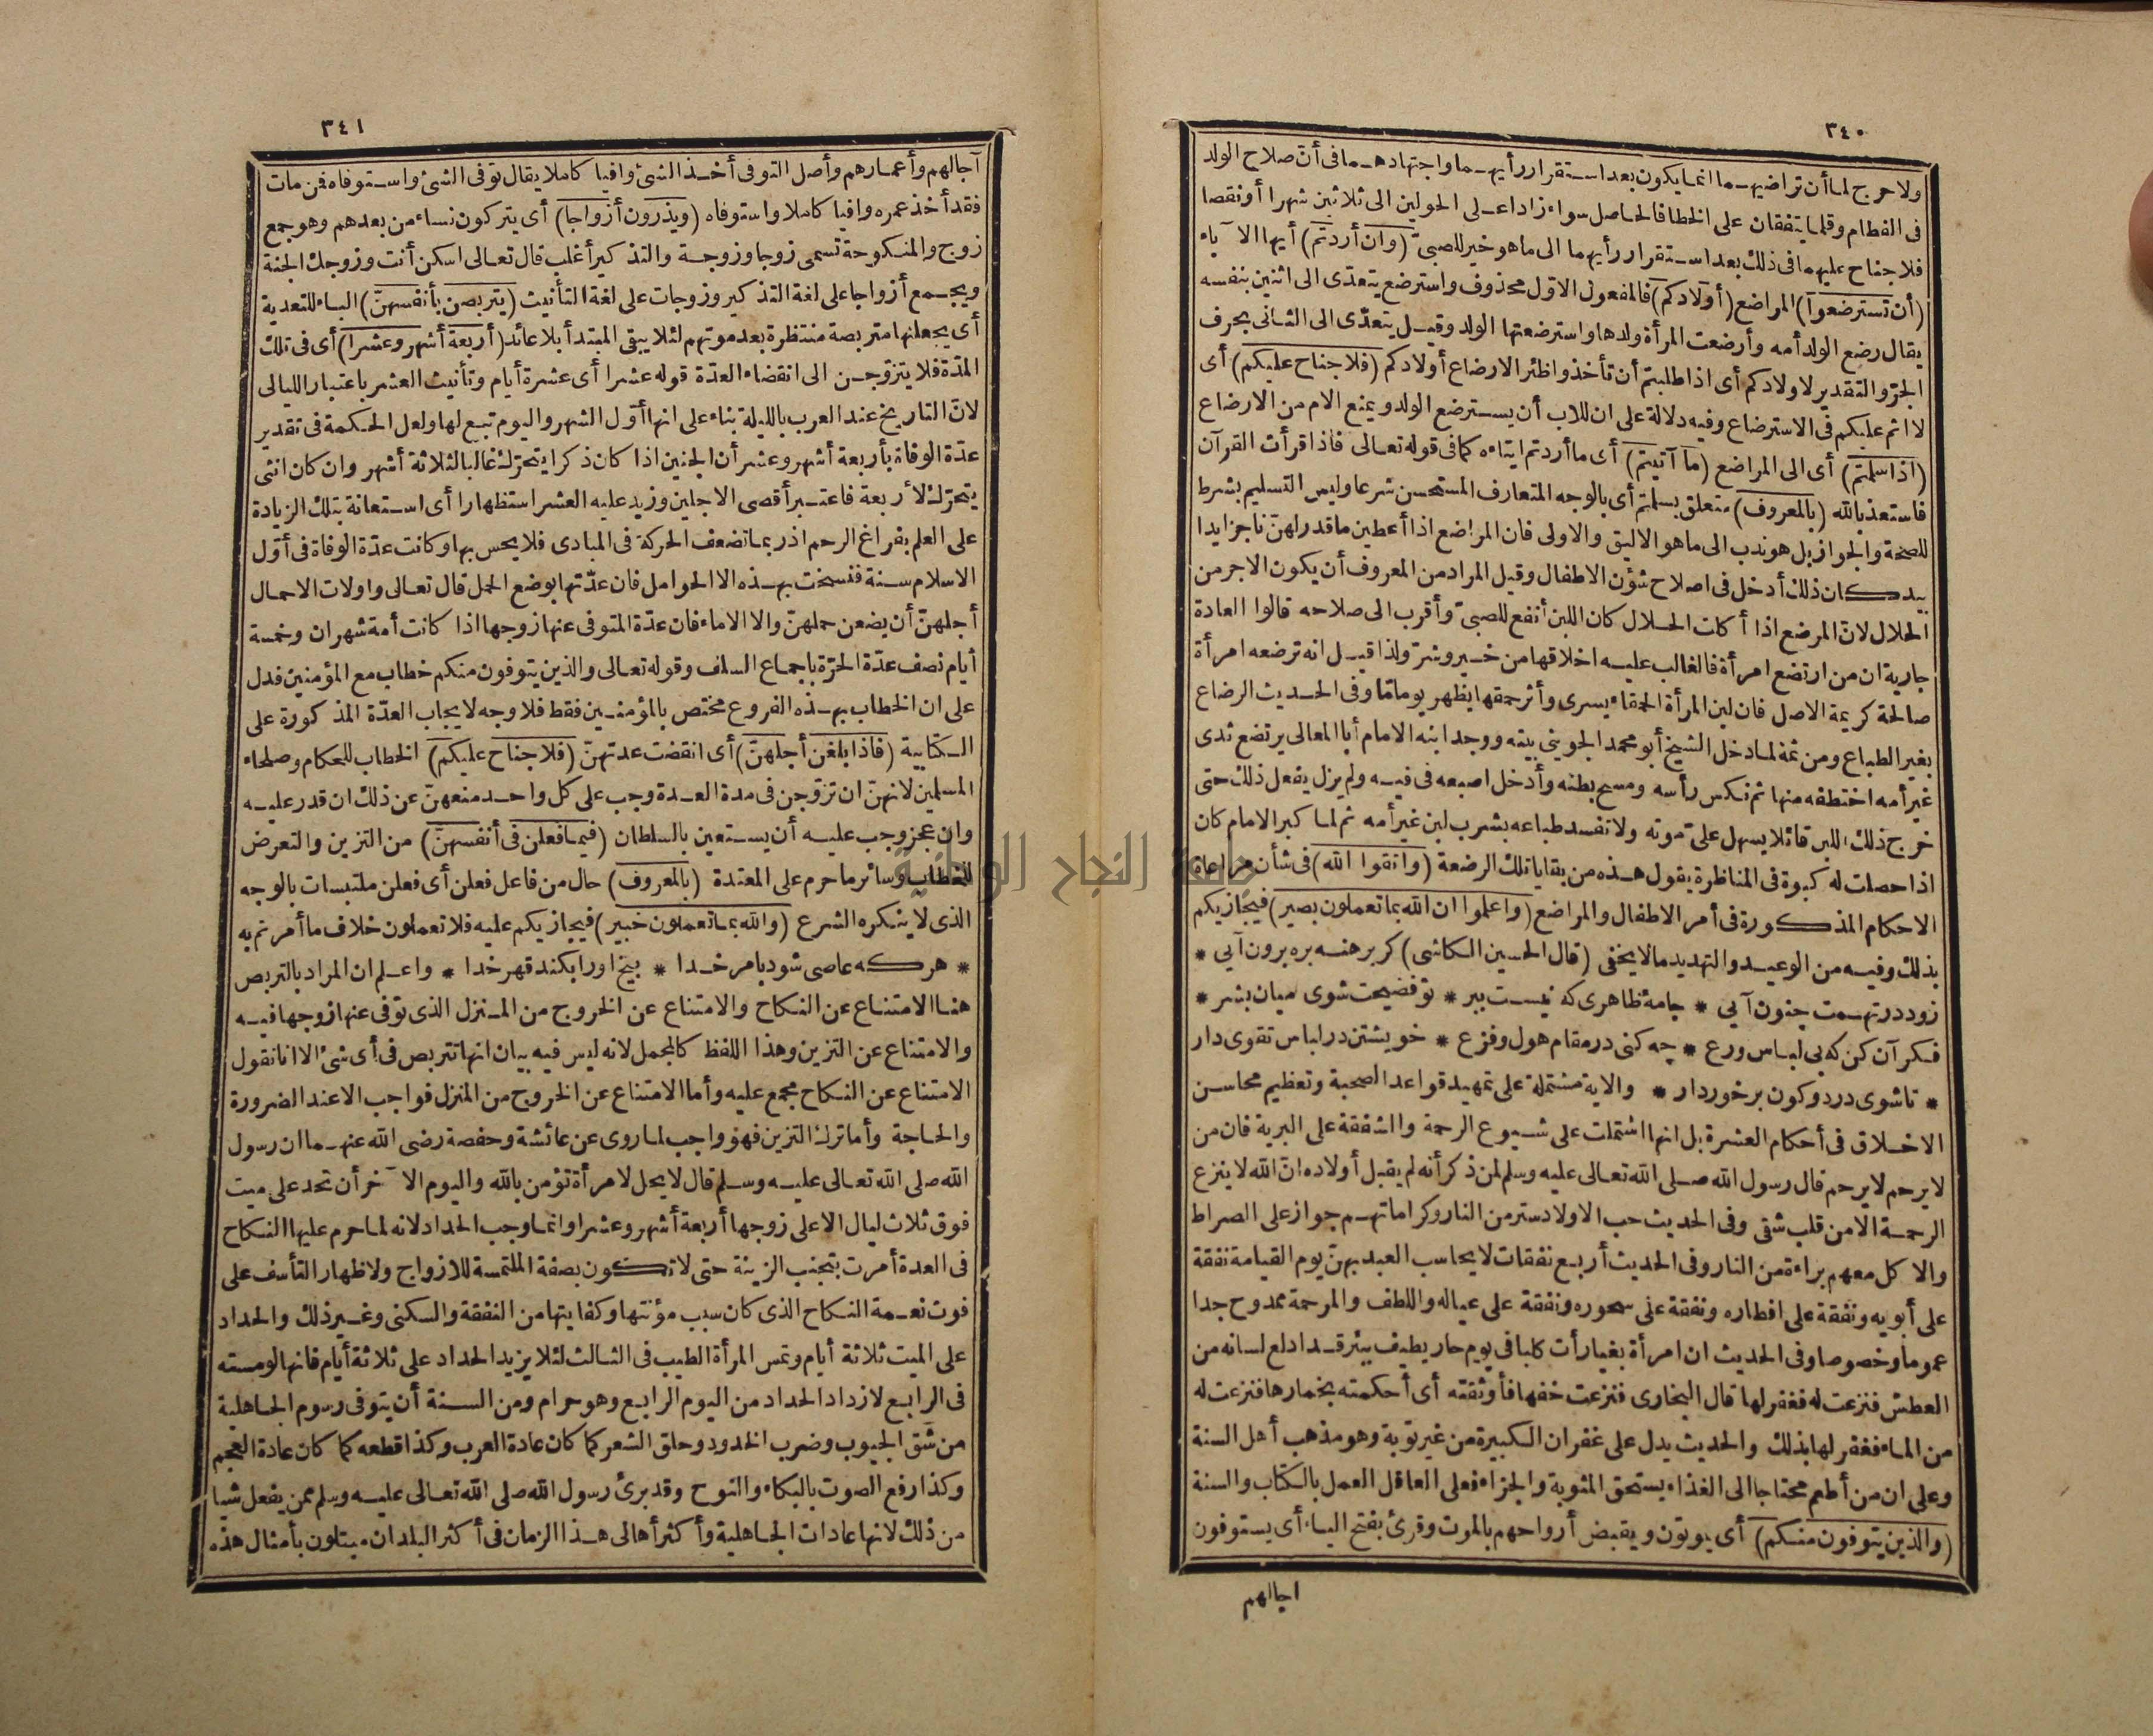 ٣٤٠
ولا حرج لما أن تراضيهما انما يكون بعد استقرار رأيهما واجتهادهما فى أن صلاح الولد
فى الفطام وقلما يتفقان على الخطا فالحاصل سواء زادا على الحولين الى ثلاثين شهرا أو نقصا
فلا جناح عليهما فى ذلك بعد استقرار رأيهما الى ما هو خير للصبىّ (وان أردتم) أيها الآباء
(أن تسترضعوا) المراضع (أولادكم) فالمفعول الاوّل محذوف واسترضع يتعدّى الى اثنين بنفسه
يقال رضع الولد أمه وأرضعت المرأة ولدها واسترضعتها الولد وقيل يتعدّى الى الثانى بحرف
الجرّ والتقدير لاولادكم أى اذا طلبتم أن تأخذوا ظئرا لارضاع أولادكم (فلا جناح عليكم) أى
لا اثم عليكم فى الاسترضاع وفيه دلالة على ان للاب أن يسترضع الولد ويمنع الام من الارضاع
(اذا سلمتم) أى الى المراضع (ما آتيتم) أى ما أردتم ايتاءه كما فى قوله تعالى فاذا قرأت القرآن
فاستعذ بالله (بالمعروف) متعلق بسلمتم أى بالوجه المتعارف المستحسن شرعا وليس التسليم بشرط
للصحة والجواز بل هو ندب الى ما هو الاليق والاولى فان المراضع اذا أعطين ما قدر لهنّ ناجزا يدا
بيد كان ذلك أدخل فى اصلاح شؤن الاطفال وقيل المراد من المعروف أن يكون الاجر من
الحلال لانّ المرضع اذا أكلت الحلال كان اللبن أنفع للصبىّ وأقرب الى صلاحه قالوا العادة
جارية ان من ارتضع امرأة فالغالب عليه اخلاقها من خير وشرّ ولذا قيل انه ترضعه امرأة
صالحة كريمة الاصل فان لبن المرأة الحمقاء يسرى وأثر حمقها يظهر يوما مّا وفى الحديث الرضاع
يغير الطباع ومن ثمة لما دخل الشيخ أبو محمد الجوينى بيته ووجد ابنه الامام أبا المعالى يرتضع ثدى
غير أمه اختطفه منها ثم نكس رأسه ومسح بطنه وأدخل اصبعه فى فيه ولم يزل يفعل ذلك حتى
خرج ذلك اللبن قائلا يسهل علىّ موته ولا تفسد طباعه بشرب لبن غير أمه ثم لما كبر الامام كان
اذا حصلت له كبوة فى المناظرة يقول هذه من بقايا تلك الرضعة (واتقوا الله) فى شأن مراعاة
الاحكام المذكورة فى أمر الاطفال والمراضع (واعلموا ان الله بما تعملون بصير) فيجازيكم
بذلك وفيه من الوعيد والتهديد ما لا يخفى (قال الحسين الكاشى) كر برهنه بره برون آيى *
زود در تهمت جنون آيى * جامهٔ ظاهرى كه نيست ببر * تو فضيحت شوى ميان بشر *
فكر آن كن كه بى لباس ورع * چه كنى در مقام هول وفزع * خويشتن در لباس تقوى دار
* تا شوى در دو كون برخوردار * والاية مشتملة على تمهيد قواعد الصحبة وتعظيم محاسن
الاخلاق فى أحكام العشرة بل انها اشتملت على شيوع الرحمة والشفقة على البرية فان من
لا يرحم لا يرحم قال رسول الله صلى الله تعالى عليه وسلم لمن ذكر أنه لم يقبل أولاده انّ الله لا ينزع
الرحمة الا من قلب شقى وفى الحديث حب الاولاد ستر من النار وكراماتهم جواز على الصراط
والاكل معهم براءة من النار وفى الحديث أربع نفقات لا يحاسب العبد بهنّ يوم القيامة نفقة
على أبويه ونفقة على افطاره ونفقة على سحوره ونفقة على عياله واللطف والمرحمة ممدوح جدا
عموما وخصوصا وفى الحديث ان امرأة بغيا رأت كلبا فى يوم حار يطيف ببئر قد ادلع لسانه من
العطش فنزعت له فغفر لها قال البخارى فنزعت خفها فأوثقته أى أحكمته بخمارها فنزعت له
من الماء فغفر لها بذلك والحديث يدل على غفران الكبيرة من غير توبة وهو مذهب أهل السنة
وعلى ان من أطعم محتاجا الى الغذاء يستحق المثوبة والجزاء فعلى العاقل العمل بالكتاب والسنة
(والذين يتوفون منكم) أى يموتون ويقبض أرواحهم بالموت وقرئ بفتح الياء أى يستوفون
اجالهم
٣٤١
آجالهم وأعمارهم وأصل التوفى أخذ الشئ وافيا كاملا يقال توفى الشئ واستوفاه فمن مات
فقد أخذ عمره وافيا كاملا واستوفاه (ويذرون أزواجا) أى يتركون نساء من بعدهم وهو جمع
زوج والمنكوحة تسمى زوجا وزوجة والتذكير أغلب قال تعالى اسكن أنت وزوجك الجنة
ويجمع أزواجا على لغة التذكير وزوجات على لغة التأنيث (يتربصن بأنفسهنّ) الباء للتعدية
أى يجعلنها متربصة منتظرة بعد موتهم لئلا يبقى المبتدأ بلا عائد (أربعة أشهر وعشرا) أى فى تلك
المدّة فلا يتزوّجن الى انقضاء العدّة قوله عشرا أى عشرة أيام وتأنيث العشر باعتبار الليالى
لانّ التاريخ عند العرب بالليلة بناء على انها أوّل الشهر واليوم تبع لها ولعل الحكمة فى تقدير
عدّة الوفاة بأربعة أشهر وعشر أن الجنين اذا كان ذكرا يتحرّك غالبا لثلاثة أشهر وان كان انثى
يتحرّك لأربعة فاعتبر أقصى الاجلين وزيد عليه العشر استظهارا أى استعانة بتلك الزيادة
على العلم بفراغ الرحم اذ ربما تضعف الحركة فى المبادى فلا يحس بها وكانت عدّة الوفاة فى أوّل
الاسلام سنة فنسخت بهذه الا الحوامل فان عدّتها بوضع الحمل قال تعالى واولات الاحمال
أجلهنّ أن يضعن حملهنّ والا الاماء فان عدّة المتوفى عنها زوجها اذا كانت أمة شهران وخمسة
أيام نصف عدّة الحرّة باجماع السلف وقوله تعالى والذين يتوفون منكم خطاب مع المؤمنين فدل
على ان الخطاب بهذه الفروع مختص بالمؤمنين فقط فلا وجه لايجاب العدّة المذكورة على
الكتابية (فاذا بلغن أجلهنّ) أى انقضت عدتهنّ (فلا جناح عليكم) الخطاب للحكام وصلحاء
المسلمين لانهنّ ان تزوّجن فى مدة العدة وجب على كل واحد منعهنّ عن ذلك ان قدر عليه
وان عجز وجب عليه أن يستعين بالسلطان (فيما فعلن فى أنفسهنّ) من التزين والتعرض
للخطاب وسائر ما حرم على المعتدة (بالمعروف) حال من فاعل فعلن أى فعلن ملتبسات بالوجه
الذى لا ينكره الشرع (والله بما تعملون خبير) فيجازيكم عليه فلا تعملون خلاف ما أمرتم به
* هركه عاصى شود بامر خدا * بيخ اورا بكند قهر خدا * واعلم ان المراد بالتربص
هنا الامتناع عن النكاح والامتناع عن الخروج من المنزل الذى توفى عنها زوجها فيه
والامتناع عن التزين وهذا اللفظ كالمجمل لانه ليس فيه بيان انها تتربص فى أى شئ الا انا نقول
الامتناع عن النكاح مجمع عليه وأما الامتناع عن الخروج من المنزل فواجب الا عند الضرورة
والحاجة وأما ترك التزين فهو واجب لما روى عن عائشة وحفصة رضى الله عنهما ان رسول
الله صلى الله تعالى عليه وسلم قال لا يحل لامرأة تؤمن بالله واليوم الآخر أن تحد على ميت
فوق ثلاث ليال الا على زوجها أربعة أشهر وعشرا وانما وجب الحداد لانه لما حرم عليها النكاح
فى العدة أمرت بتجنب الزينة حتى لا تكون بصفة الملتمسة للازواج ولاظهار التأسف على
فوت نعمة النكاح الذى كان سبب مؤنتها وكفايتها من النفقة والسكنى وغير ذلك والحداد
على الميت ثلاثة أيام وتمس المرأة الطيب فى الثالث لئلا يزيد الحداد على ثلاثة أيام فانها لو مسته
فى الرابع لازداد الحداد من اليوم الرابع وهو حرام ومن السنة أن يتوقى رسوم الجاهلية
من شق الجيوب وضرب الخدود وحلق الشعر كما كان عادة العرب وكذا قطعه كما كان عادة العجم
وكذا رفع الصوت بالبكاء والنوح وقد برئ رسول الله صلى الله تعالى عليه وسلم ممن يفعل شيأ
من ذلك لانها عادات الجاهلية وأكثر أهالى هذا الزمان فى أكثر البلدان مبتلون بأمثال هذه
جامعة النجاح الوطنية